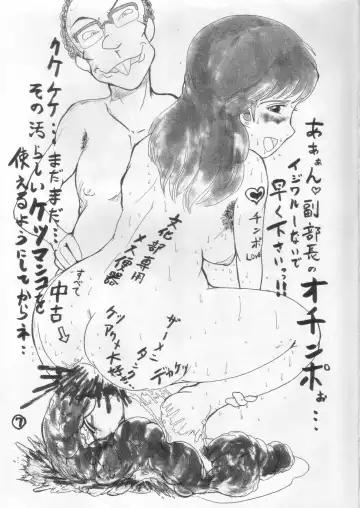 あぁぁん♡副部長の
イジワルしないで
早く下さいっ!!
オチンポぉ…
クケケケ…まだまだ…
その汚らしいケツマンコを
使えるようにしてからネ…
チンポ
LOVE
文化部専用
メス便器
すべて
中古
ケツ
アクメ大好き
ザーメン
タンク
デカケツ
⑦